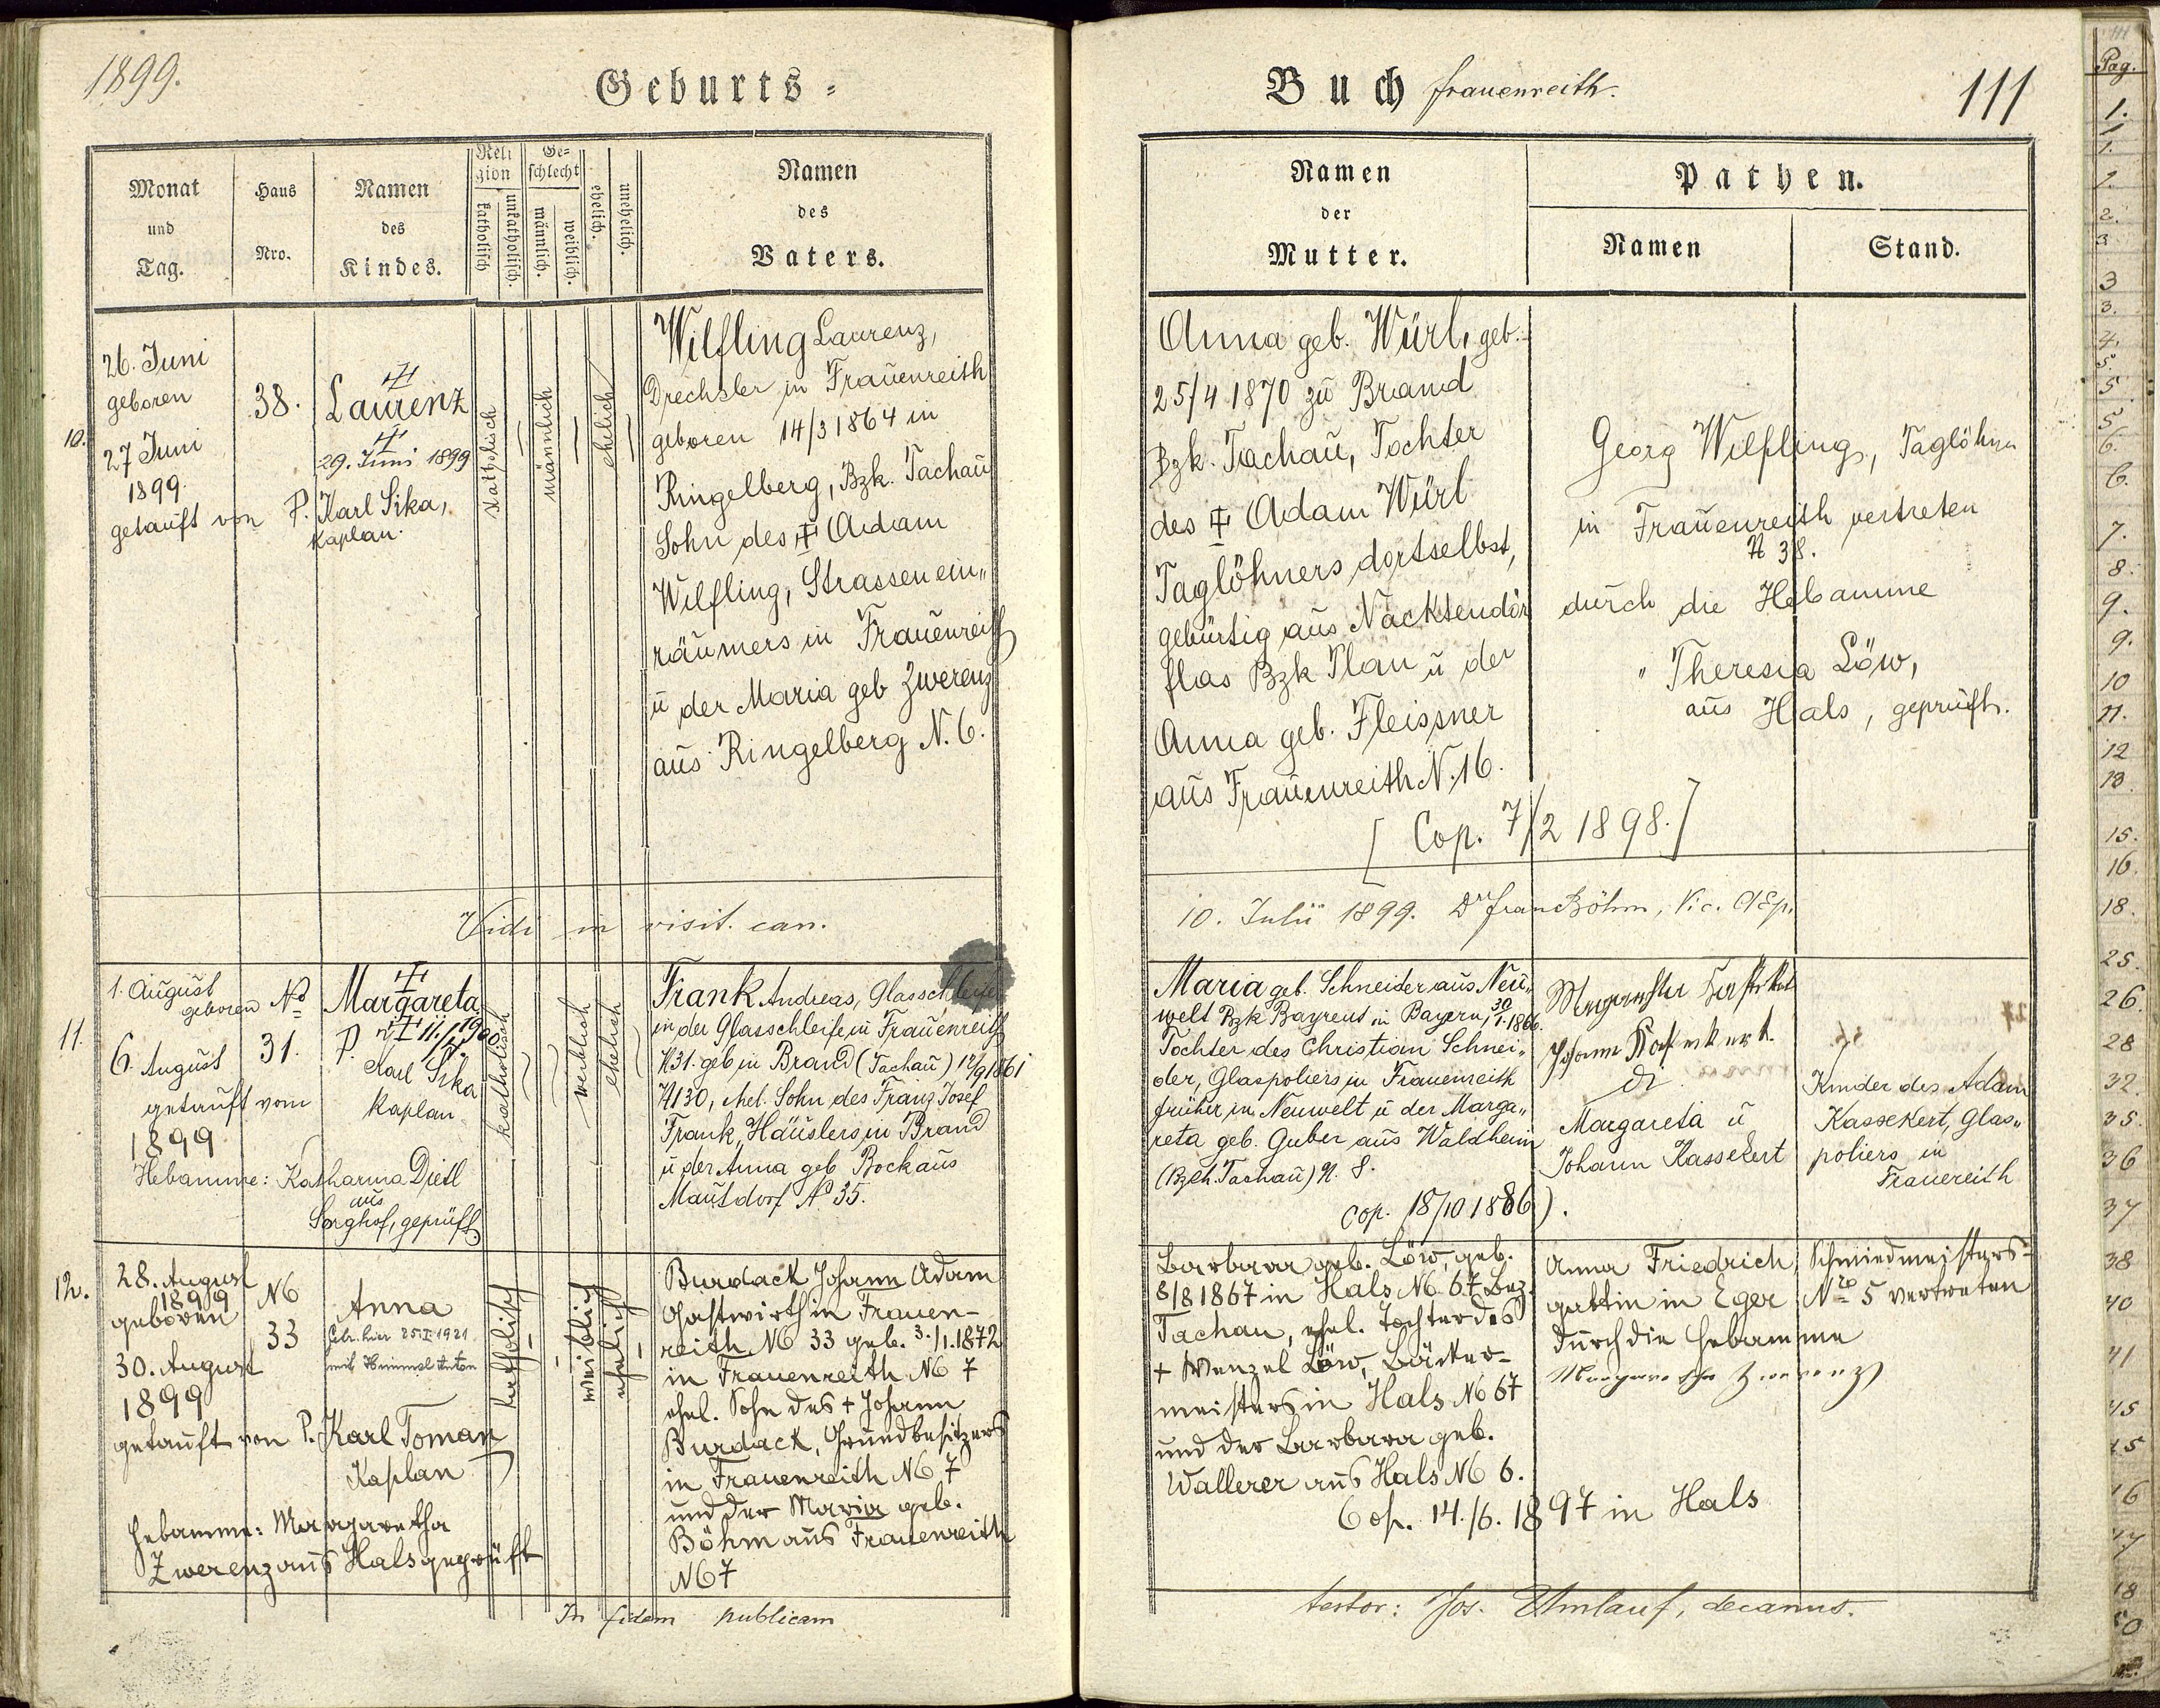 1899.
Geburts-
Monat
und
Tag.
Haus
Nro.
Namen
des
Kindes.
Religion
katholisch
unkatholisch.
Geschlecht
männlich.
weiblich.
ehelich.
unehelich.
Namen
des
Vaters.
10.
26. Juni
geboren
27 Juni
1899.
getauft von P. Karl Sika,
Kaplan.
38.
Laurenz
29. Juni 1899
Katholisch
männlich
ehelich
Wilfling Laurenz,
Drechsler in Frauenreith
geboren 14/3 1864 in
Ringelberg, Bzk. Tachau
Sohn des ‡ Adam
Wilfling, Strassenein„
räumers in Frauenreith
u der Maria geb Zwerenz
aus Ringelberg N. 6.
Vidi in visit. can.
11.
1. August
geboren
6. August
getauft vom
1899
No
31.
Margareta
‡ 11./1. 1900
P.
Karl Sika
Kaplan
Hebamme: Katharina Dietl
aus
Sorghof, geprüft
katholisch
weiblich
ehelich
Frank Andreas, Glasschleifer
in der Glasschleife in Frauenreith
N 31. geb in Brand (Tachau) 12/9 1861
N 130, ehel. Sohn des Franz Josef
Frank, Häuslers in Brand
u der Anna geb Bock aus
Mautdorf No 35.
12.
28. August
1899
geboren
30. August
1899
getauft von P. Karl Toman
Kaplan
No
33
Anna
Getr. hier 25.I.1921
mit Himmel Anton
Hebamme: Margaretha
Zwerenz aus Hals geprüft
katholisch
weiblich
ehelich
Burdack Johann Adam
Gastwirth in Frauen-
reith No 33 geb. 3./1.1872
in Frauenreith No 7
ehel. Sohn des + Johann
Burdack, Grundbesitzers
in Frauenreith No 7
und der Maria geb.
Böhm aus Frauenreith
No 7
In fidem publicam
Buch Frauenreith.
111
Namen
der
Mutter.
Pathen.
Namen
Stand.
Anna geb. Würl, geb.
25/4 1870 zu Brand
Bzk. Tachau, Tochter
des ‡ Adam Würl
Taglöhners dortselbst,
gebürtig aus Nacktendör
flas Bzk Plan u der
Anna geb. Fleissner
aus Frauenreith N. 16.
[Cop. 7/2 1898.]
Georg Wilfling, Taglöhner
in Frauenreith vertreten
N 38.
durch die Hebamme
Theresia Löw,
aus Hals, geprüft.
10. Julii 1899. Dr Franc Böhm, Vic. AEp.
Maria geb. Schneider aus Neu„
welt Bzk Bayreut in Bayern, 30/1.1866.
Tochter des Christian Schnei„
der, Glaspoliers in Frauenreith
früher in Neuwelt u der Marga„
reta geb. Guber aus Waldheim
(Bzh. Tachau) N. 8.
cop. 18/10 1886).
Margaretha Kassekert
Johann Kassekert.
Margareta u
Johann Kassekert
Kinder des Adam
Kassekert, Glas„
poliers in
Frauereith
Barbara geb. Löw, geb.
8/8 1867 in Hals No 67 Bez.
Tachau, ehel. Tochter des
+ Wenzel Löw, Bäcker-
meisters in Hals No 67
und der Barbara geb.
Wallerer aus Hals No 6.
Cop. 14./6. 1897 in Hals
Anna Friedrich, Schmiedmeisters-
gattin in Eger Nro 5 vertreten
durch die Hebamme
Margaretha Zwerenz
testor: Jos. Umlauf, decanus.
Pag.
1.
1
1.
1.
2.
3
3
3.
4.
5.
5
5
6.
6.
7.
8.
9.
9.
10
11.
12
13.
15.
16.
18.
25.
26.
28
32.
35.
36
37
38
40
41
45
45
46
47
48
50